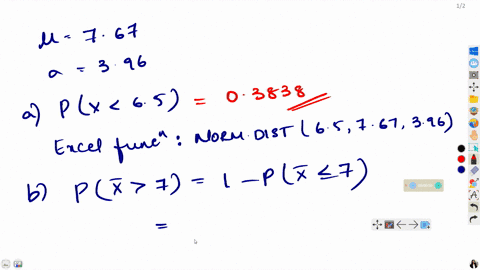 1/2
μ = 7.67
σ = 3.96
a) P(x < 6.5) = 0.3838
Excel funcⁿ: NORM.DIST(6.5, 7.67, 3.96)
b) P(x̄ > 7) = 1 - P(x̄ ≤ 7)
=